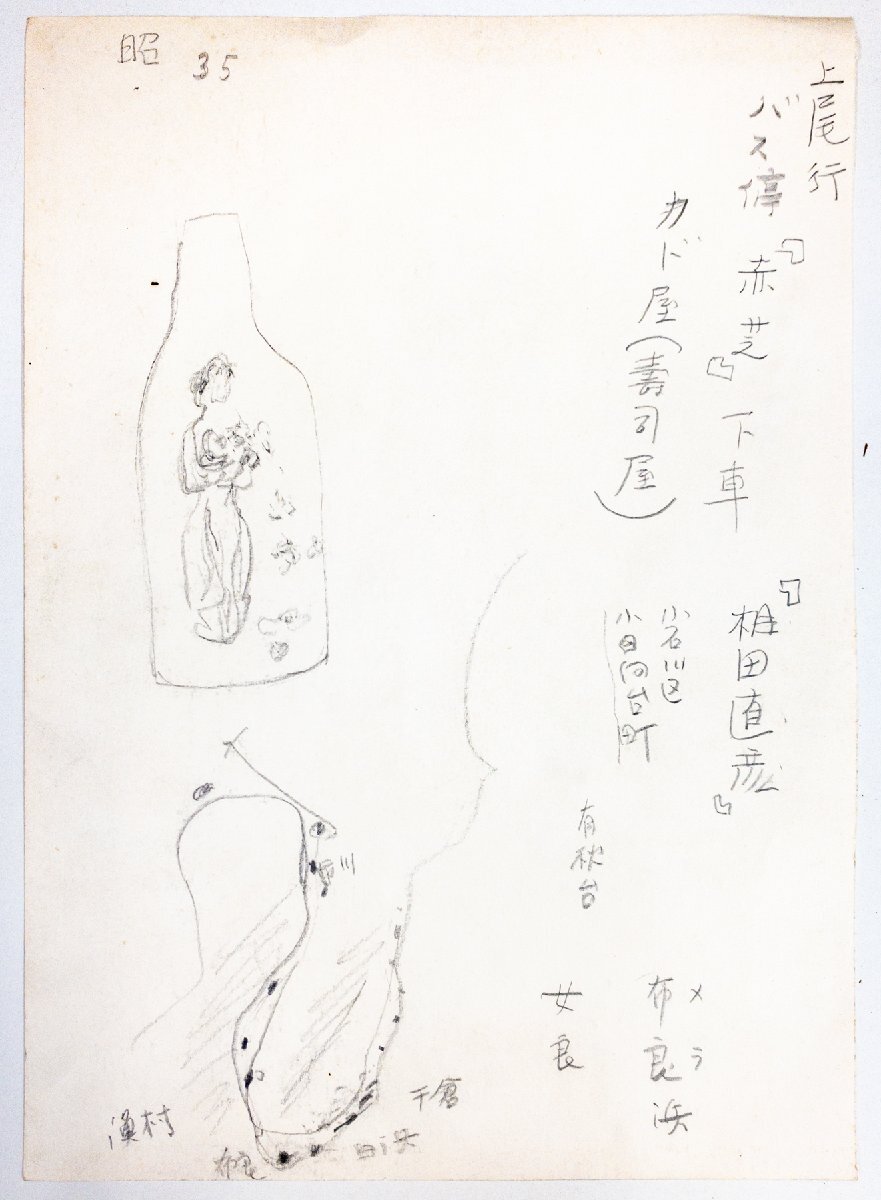 昭 35
上尾行
バス停『赤芝』下車
カド屋(壽司屋)
『椎田直彦』
小石川区
小日向台町
有秋台
メラ
布良浜
女良
市川
千倉
白浜
布良
漁村